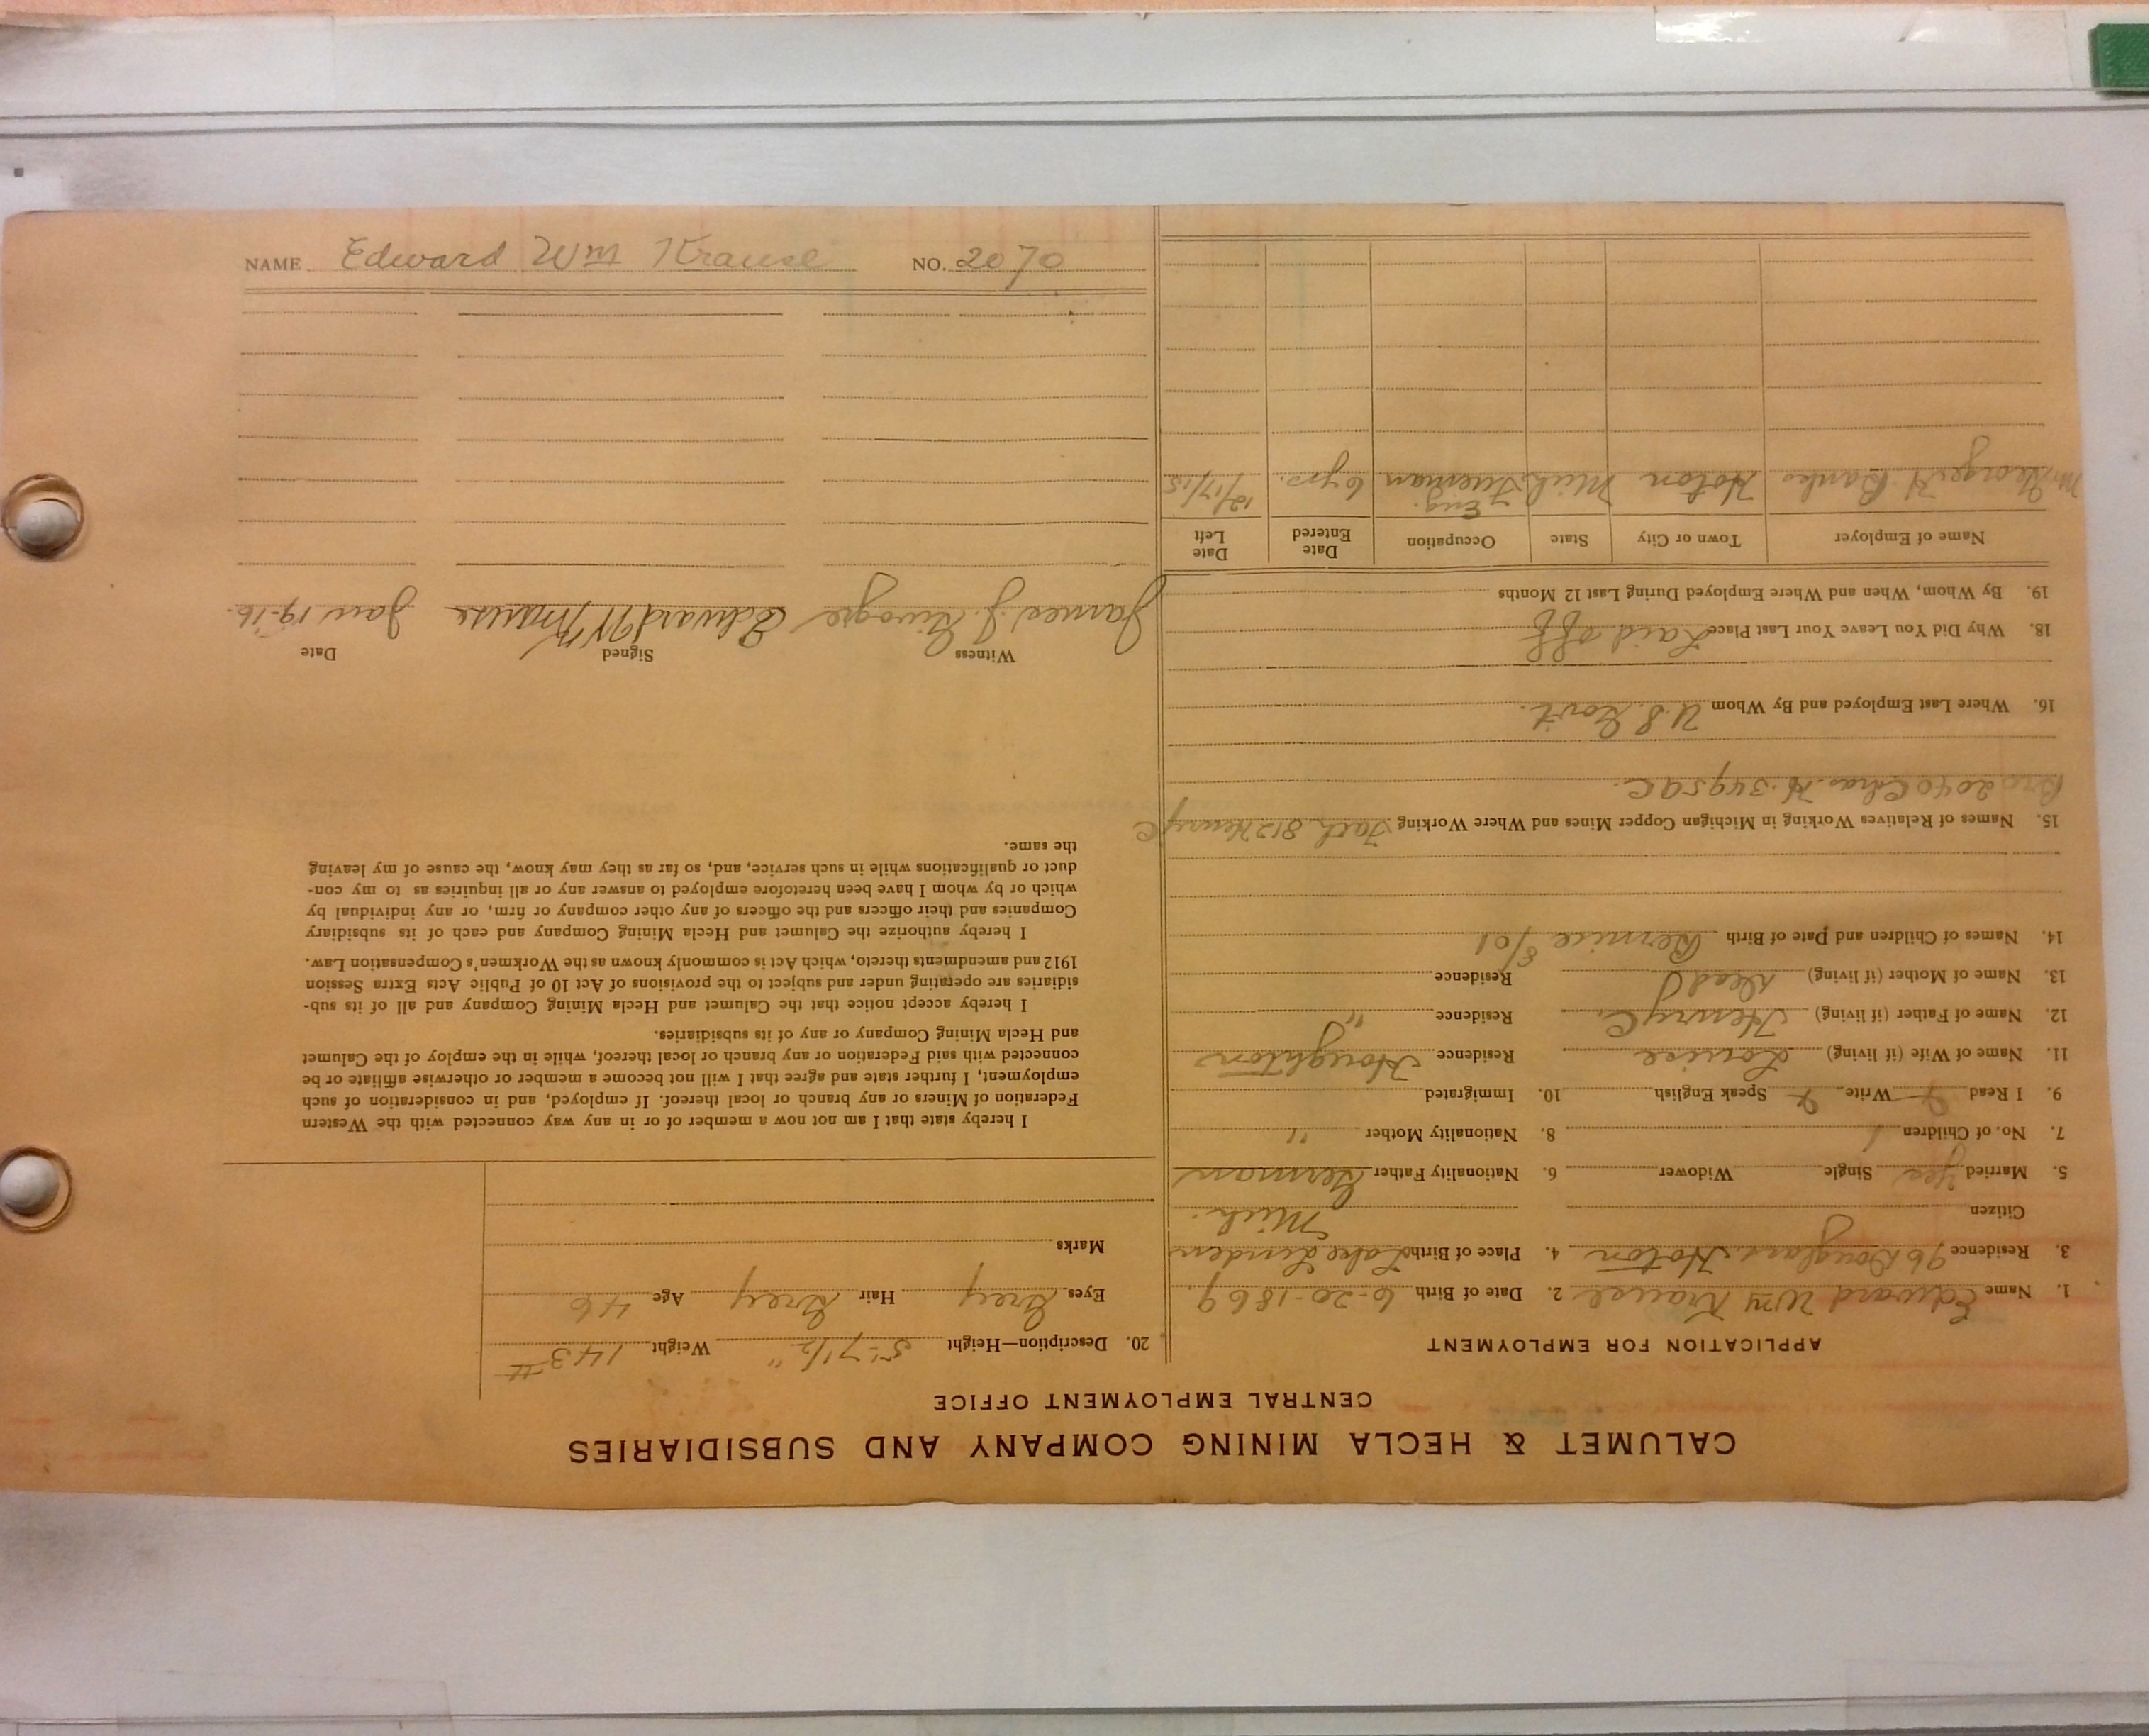 CALUMET & HECLA MINING COMPANY AND SUBSIDIARIES
CENTRAL EMPLOYMENT OFFICE
APPLICATION FOR EMPLOYMENT
1. Name Edward Wm Krause 2. Date of Birth 6-20-1869
3. Residence 96 Douglass, Hoton 4. Place of Birth Lake Linden
Citizen Mich.
5. Married Yes Single Widower 6. Nationality Father German
7. No. of Children 1 8. Nationality Mother "
9. I Read Write Speak English 10. Immigrated
11. Name of Wife (if living) Louise Residence Houghton
12. Name of Father (if living) Henry C. Residence "
13. Name of Mother (if living) Dead Residence
14. Names of Children and Date of Birth Bernice 8/01
15. Names of Relatives Working in Michigan Copper Mines and Where Working Fath. 812 Henry C
Bro 2040 Chas. H. 3495 QC.
16. Where Last Employed and By Whom U.S. Govt.
18. Why Did You Leave Your Last Place Laid off
19. By Whom, When and Where Employed During Last 12 Months
Name of Employer Town or City State Occupation Date Entered Date Left
Mr. George H Banks Hoton Mich Eng. Fireman 6 yrs. 12/17/15
20. Description—Height 5'-7 1/2" Weight 143#
Eyes Grey Hair Grey Age 46
Marks
I hereby state that I am not now a member of or in any way connected with the Western
Federation of Miners or any branch or local thereof. If employed, and in consideration of such
employment, I further state and agree that I will not become a member or otherwise affiliate or be
connected with said Federation or any branch or local thereof, while in the employ of the Calumet
and Hecla Mining Company or any of its subsidiaries.
I hereby accept notice that the Calumet and Hecla Mining Company and all of its sub-
sidiaries are operating under and subject to the provisions of Act 10 of Public Acts Extra Session
1912 and amendments thereto, which Act is commonly known as the Workmen's Compensation Law.
I hereby authorize the Calumet and Hecla Mining Company and each of its subsidiary
Companies and their officers and the officers of any other company or firm, or any individual by
which or by whom I have been heretofore employed to answer any or all inquiries as to my con-
duct or qualifications while in such service, and, so far as they may know, the cause of my leaving
the same.
Witness Signed Date
James J. Edward W Krause Jan 19-16.
NAME Edward Wm Krause NO. 2070